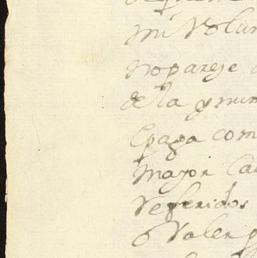 mi Volun
no pareje
de la y mun
Epaga com
mayor Ca
referidos
o Valer g